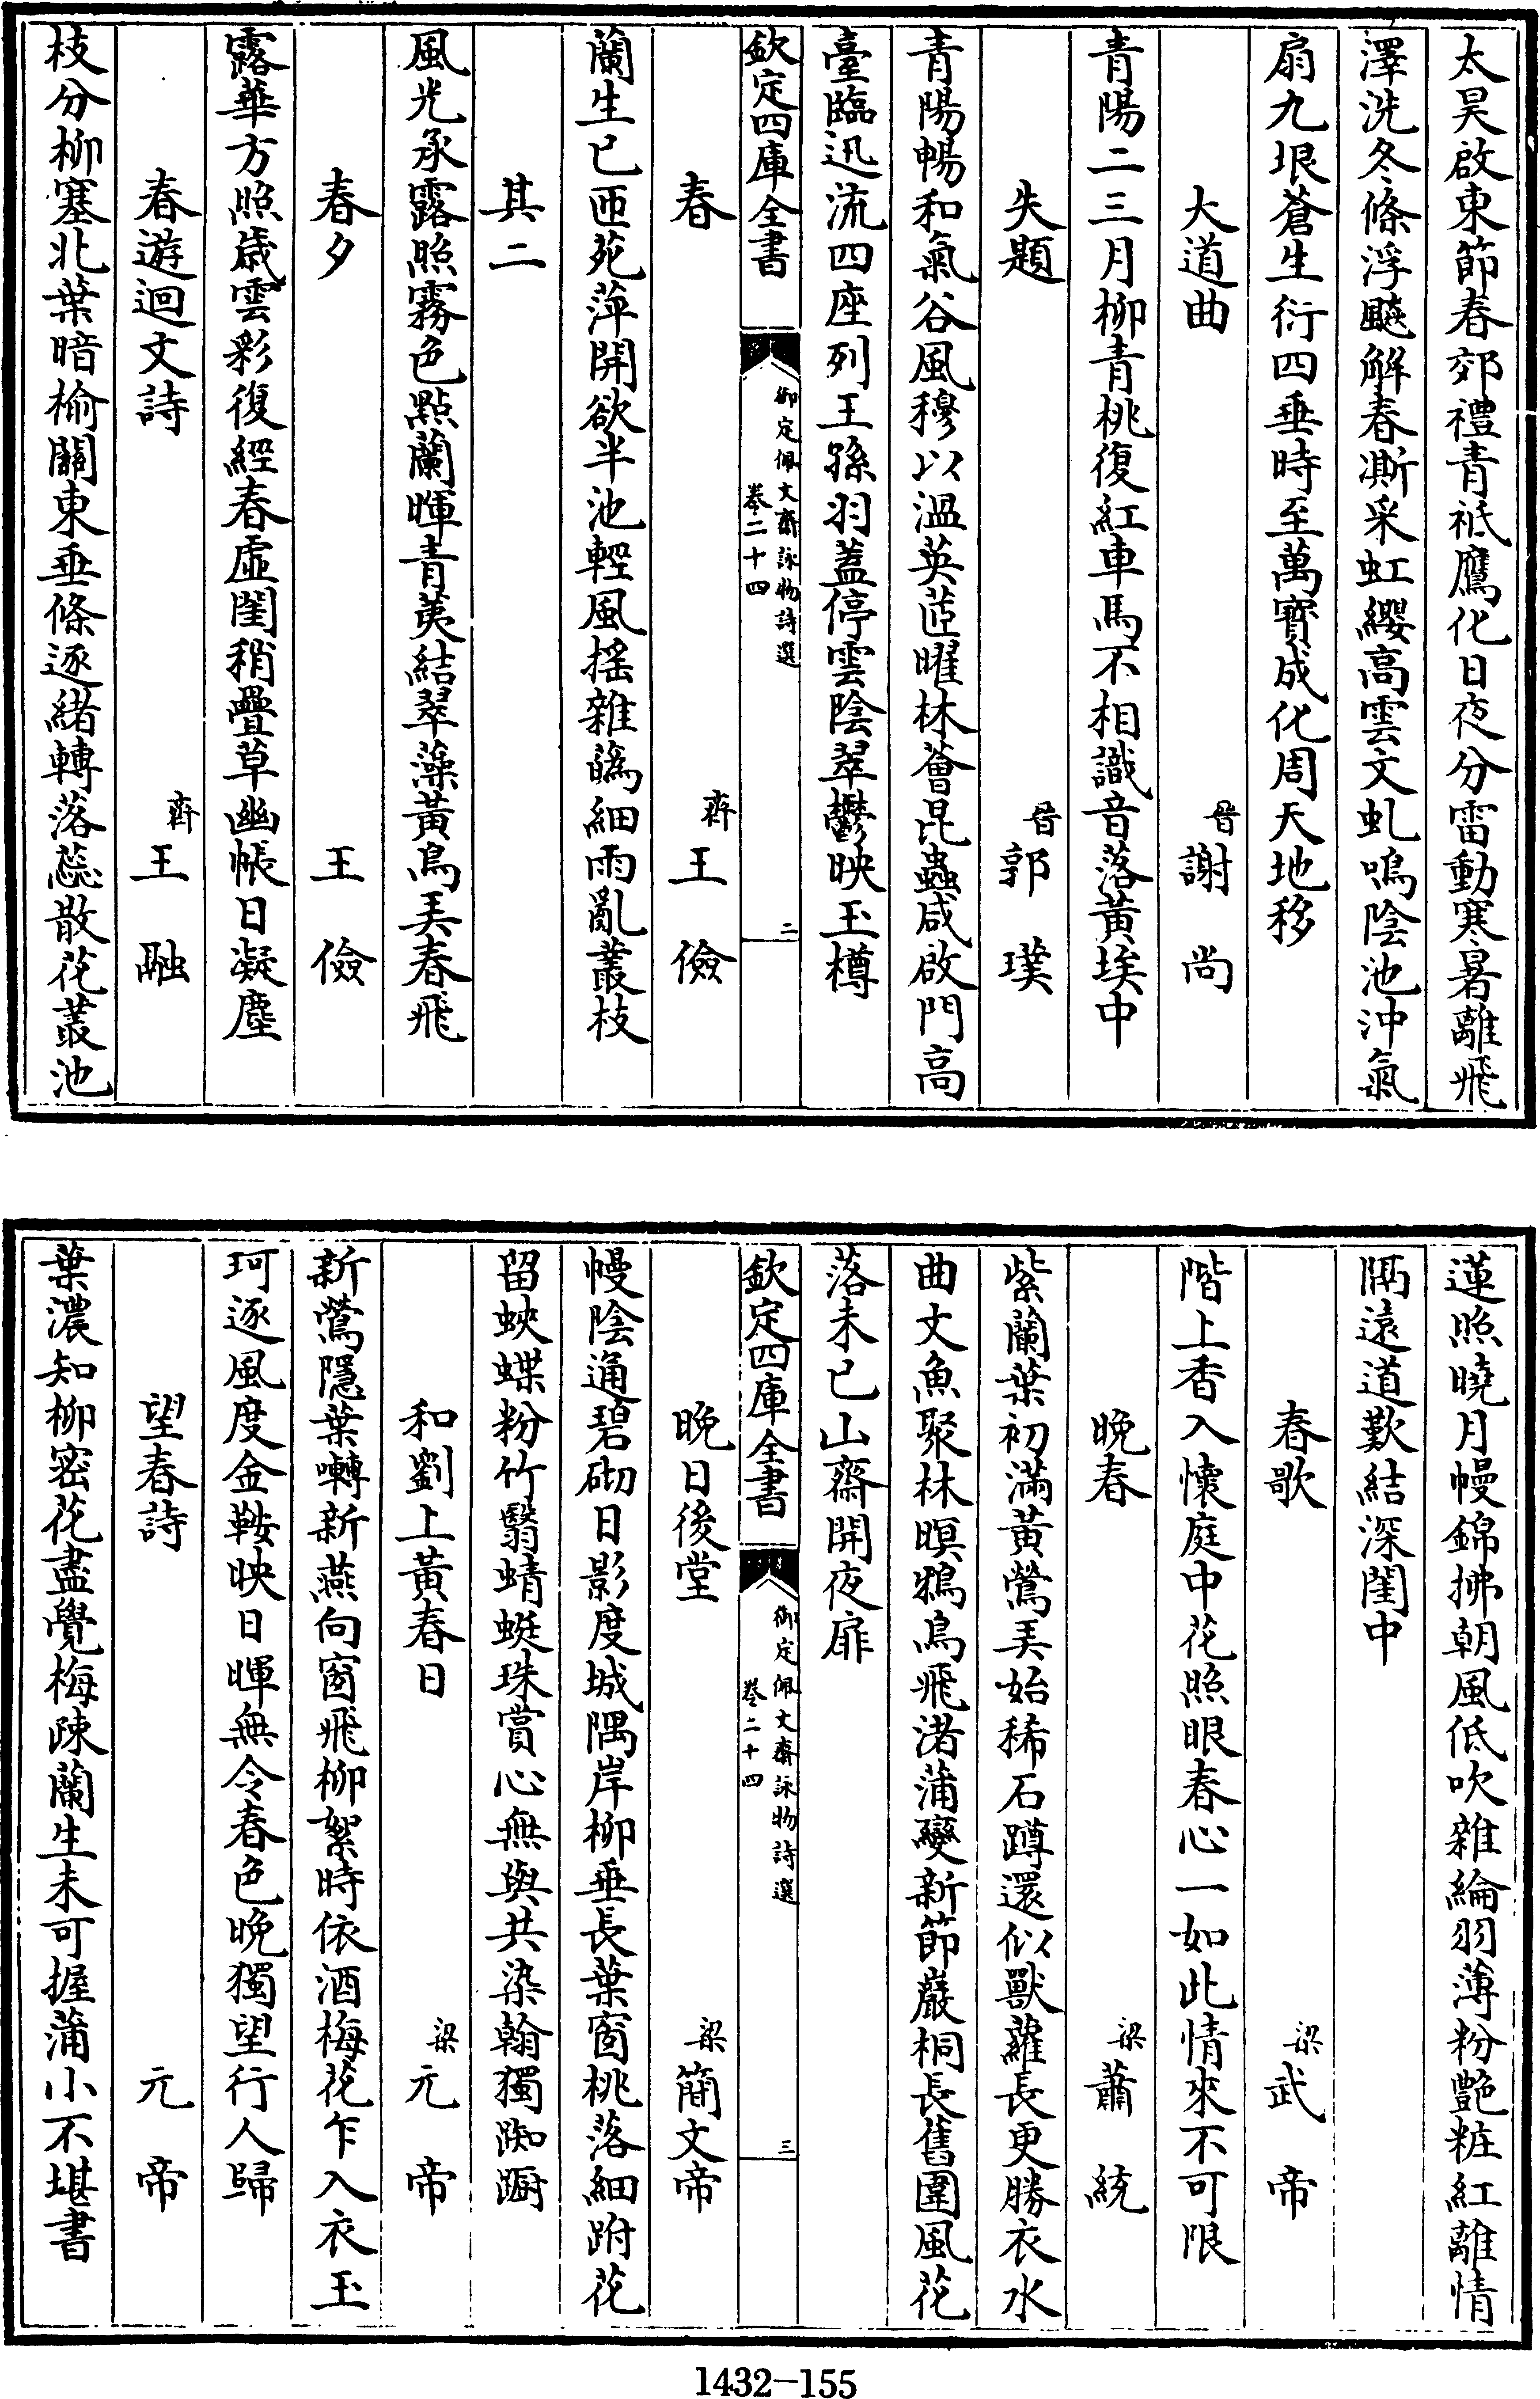 太昊啟東節春郊禮青祗鷹化日夜分雷動寒暑離飛
澤洗冬條浮飈解春凘采虹纓高雲文虬鳴陰池沖氣
扇九垠蒼生衍四垂時至萬寳成化周天地移
大道曲 晉謝尚
青陽二三月柳青桃復紅車馬不相識音落黃埃中
失題 晉郭璞
青陽暢和氣谷風穆以溫英茝曜林薈昆蟲咸啟門高
臺臨迅流四座列王孫羽蓋停雲陰翠鬱映玉樽
欽定四庫全書 御定佩文齋詠物詩選 卷二十四 二
春 齊王儉
蘭生已匝苑萍開欲半池輕風搖雜蘤細雨亂叢枝
其二
風光承露照霧色點蘭暉青荑結翠藻黃鳥弄春飛
春夕 王儉
露華方照歲雲彩復經春虛閨稍疊草幽帳日凝塵
春遊迴文詩 齊王融
枝分柳塞北葉暗榆關東垂條逐緒轉落蕊散花叢池
蓮照曉月幔錦拂朝風低吹雜綸羽薄粉艷粧紅離情
隔遠道歎結深閨中
春歌 梁武帝
階上香入懷庭中花照眼春心一如此情來不可限
晚春 梁蕭統
紫蘭葉初滿黃鶯弄始稀石蹲還似獸蘿長更勝衣水
曲丈魚聚林暝鴉鳥飛渚蒲變新節巖桐長舊圍風花
落未已山齋開夜扉
欽定四庫全書 御定佩文齋詠物詩選 卷二十四 三
晚日後堂 梁簡文帝
幔陰通碧砌日影度城隅岸柳垂長葉窗桃落細跗花
留蛺蝶粉竹翳蜻蜓珠賞心無與共染翰獨踟躕
和劉上黃春日 梁元帝
新鶯隱葉囀新燕向窗飛柳絮時依酒梅花乍入衣玉
珂逐風度金鞍映日暉無令春色晚獨望行人歸
望春詩 元帝
葉濃知柳密花盡覺梅疎蘭生未可握蒲小不堪書
1432-155